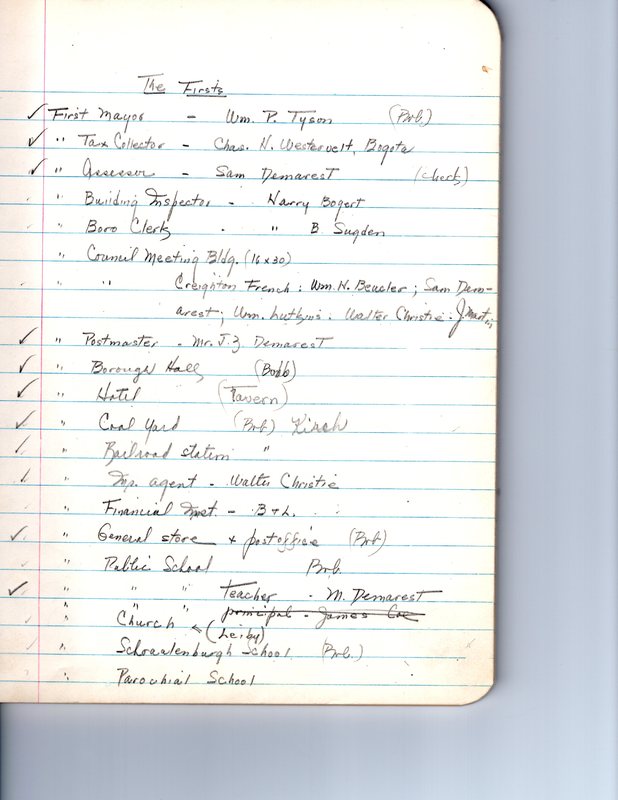 The Firsts
✓ First Mayor - Wm. P. Tyson (Bob.)
✓ " Tax Collector - Chas. N. Westervelt, Bogota
✓ " Assessor - Sam Demarest (check)
" Building Inspector - Harry Bogert
" Boro Clerk - " B. Sugden
" Council Meeting Bldg. (16 x 30)
" " Creighton French : Wm. N. Beucler ; Sam Dem-
arest ; Wm. Lutkins . Walter Christie : J. Martin
✓ " Postmaster - Mr. J. Z Demarest
✓ " Borough Hall (Bobb)
✓ " Hotel (Tavern)
✓ " Coal Yard (Bob) Kirsch
✓ " Railroad station "
✓ " Inp. agent - Walter Christie
" Financial Inst. - B + L.
✓ " General store + postoffice (Bob)
" Public School Bob.
✓ " " " Teacher - M. Demarest
" principal - James Coe
" Church < (Leiby)
✓ " Schraalenburgh School (Bob.)
" Parochial School